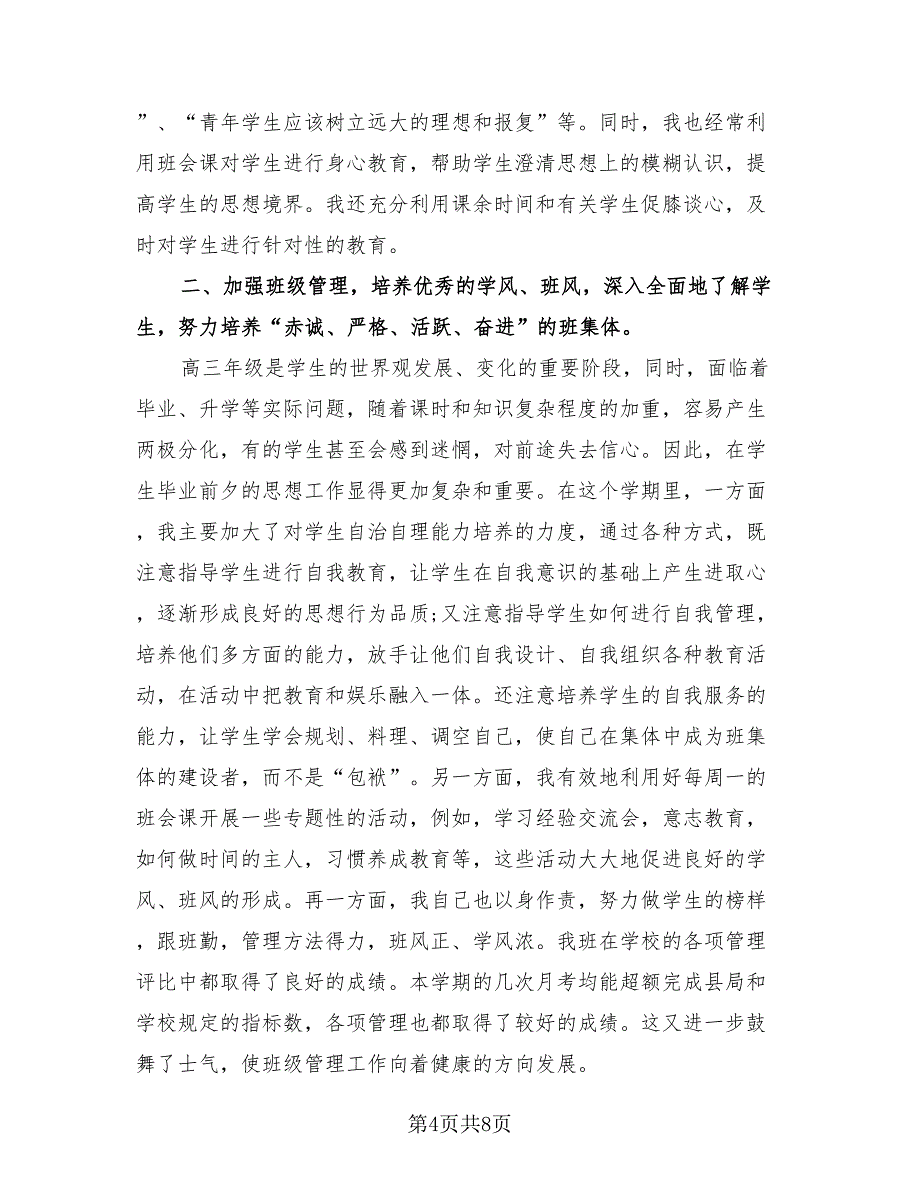 ”、“青年学生应该树立远大的理想和报复”等。同时，我也经常利
用班会课对学生进行身心教育，帮助学生澄清思想上的模糊认识，提
高学生的思想境界。我还充分利用课余时间和有关学生促膝谈心，及
时对学生进行针对性的教育。
二、加强班级管理，培养优秀的学风、班风，深入全面地了解学
生，努力培养“赤诚、严格、活跃、奋进”的班集体。
高三年级是学生的世界观发展、变化的重要阶段，同时，面临着
毕业、升学等实际问题，随着课时和知识复杂程度的加重，容易产生
两极分化，有的学生甚至会感到迷惘，对前途失去信心。因此，在学
生毕业前夕的思想工作显得更加复杂和重要。在这个学期里，一方面
，我主要加大了对学生自治自理能力培养的力度，通过各种方式，既
注意指导学生进行自我教育，让学生在自我意识的基础上产生进取心
，逐渐形成良好的思想行为品质;又注意指导学生如何进行自我管理，
培养他们多方面的能力，放手让他们自我设计、自我组织各种教育活
动，在活动中把教育和娱乐融入一体。还注意培养学生的自我服务的
能力，让学生学会规划、料理、调空自己，使自己在集体中成为班集
体的建设者，而不是“包袱”。另一方面，我有效地利用好每周一的
班会课开展一些专题性的活动，例如，学习经验交流会，意志教育，
如何做时间的主人，习惯养成教育等，这些活动大大地促进良好的学
风、班风的形成。再一方面，我自己也以身作责，努力做学生的榜样
，跟班勤，管理方法得力，班风正、学风浓。我班在学校的各项管理
评比中都取得了良好的成绩。本学期的几次月考均能超额完成县局和
学校规定的指标数，各项管理也都取得了较好的成绩。这又进一步鼓
舞了士气，使班级管理工作向着健康的方向发展。
第4页共8页